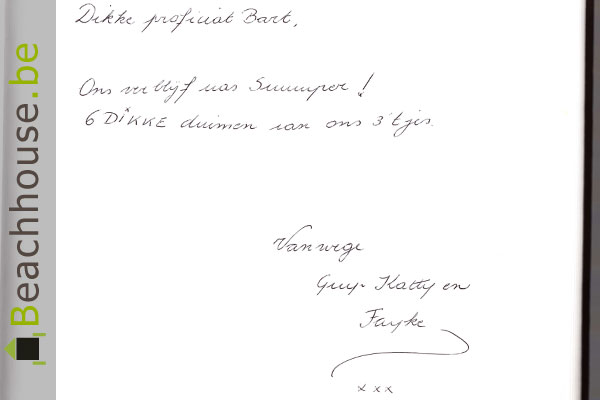 Beachhouse.be
Dikke proficiat Bart,
Ons verblijf was Suuuuper!
6 DIKKE duimen van ons 3'tjes.
Vanwege
Guy - Katty en
Fayke
x x x